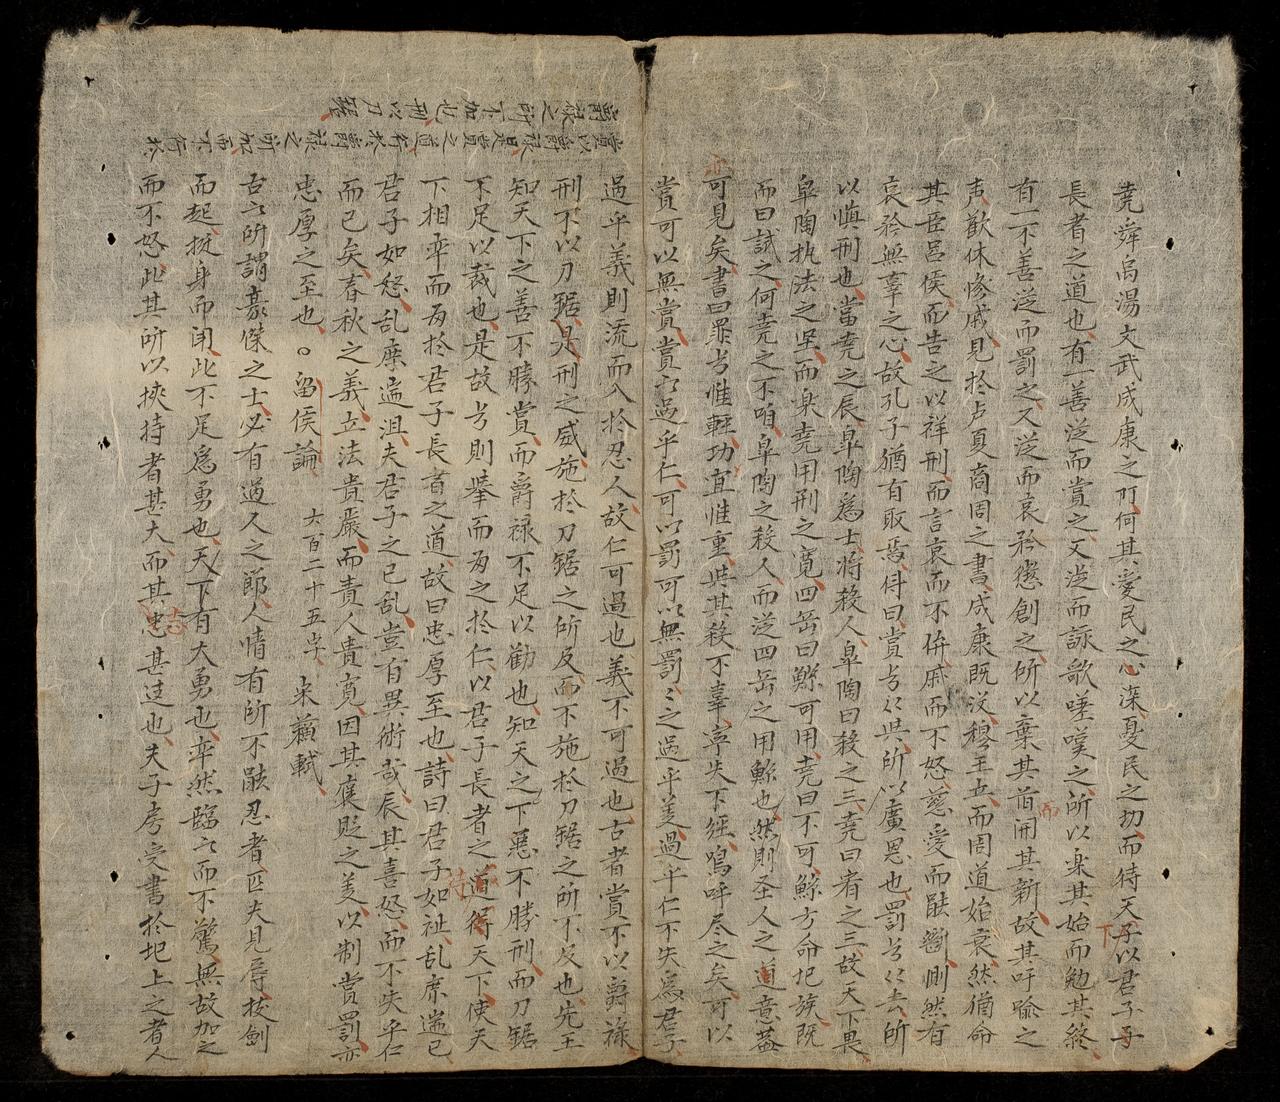 堯舜禹湯文武成康之际何其愛民之心深憂民之切而待天子以君子子
長者之道也有一善泛而賞之又泛而詠歌嗟嘆之所以楽其始而勉其終
有一不善泛而罰之又泛而哀矜懲創之所以棄其旧開其新故其吁喻之
声歓休慘戚見於占頁商周之書成康既没穆王立而周道始衰然猶命
其臣呂侯而告之以祥刑而言哀而不併戚而不怒慈愛而能断惻然有
哀矜無辜之心故孔子猶有取焉传曰賞另々與所以廣恩也罰另々去所
以慎刑也當堯之辰皐陶為士将殺人皐陶曰殺之三堯曰宥之三故天下畏
皐陶执法之坚而楽堯用刑之寛四岳曰鯀可用堯曰不可鯀方命圮族既
而曰試之何堯之不咱皐陶之殺人而泛四岳之用鯀也然則圣人之道意蓋
可見矣書曰罪另惟軽功宜惟重與其殺不辜寧失下經嗚呼尽之矣可以
賞可以無賞賞之過乎仁可以罰可以無罰々之過乎義過乎仁不失為君子
過乎義則流而入於忍人故仁可過也義不可過也古者賞不以爵祿
刑不以刀鋸是刑之威施於刀鋸之所及而不施於刀鋸之所不及也先王
知天下之善不勝賞而爵禄不足以勸也知天之下惡不勝刑而刀鋸
不足以裁也是故另則挙而为之於仁以君子長者之道待天下使天
下相率而为於君子長者之道故曰忠厚至也詩曰君子如祉乱庶遄已
君子如怒乱庶遄沮夫君子之已乱豈有異術哉辰其喜怒而不失乎仁
而已矣春秋之義立法貴嚴而責人貴寛因其褒貶之義以制賞罰亦
忠厚之至也○留侯論 六百二十五字 宋蘓軾
古之所謂豪傑之士必有過人之節人情有所不能忍者匹夫見辱抜劍
而起挺身而閗此不足為勇也天下有大勇也卒然臨之而不驚無故加之
而不怒此其所以挾持者甚大而其忠甚遠也夫子房受書於圯上之者人
賞以爵祿是賞之道行於爵祿之所加而不行於
爵祿之所不加也刑以刀鋸